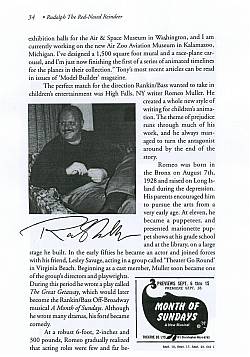 34 • Rudolph The Red-Nosed Reindeer
exhibition halls for the Air & Space Museum in Washington, and I am
currently working on the new Air Zoo Aviation Museum in Kalamazoo,
Michigan. I've designed a 1,500 square foot mural and a race-plane car-
ousal, and I'm just now finishing the first of a series of animated timelines
for the planets in their collection." Tony's most recent articles can be read
in issues of 'Model Builder' magazine.
The perfect match for the direction Rankin/Bass wanted to take in
children's entertainment was High Falls, NY writer Romeo Muller. He
created a whole new style of
writing for children's anima-
tion. The theme of prejudice
runs through much of his
work, and he always man-
aged to turn the antagonist
around by the end of the
story.
Romeo was born in
the Bronx on August 7th,
1928 and raised on Long Is-
land during the depression.
His parents encouraged him
to pursue the arts from a
very early age. At eleven, he
became a puppeteer, and
presented marionette pup-
pet shows at his grade school
and at the library, on a large
stage he built. In the early fifties he became an actor and joined forces
with his friend, Lesley Savage, acting in a group called 'Theatre Go Round'
in Virginia Beach. Beginning as a cast member, Muller soon became one
of the group's directors and playwrights.
During this period he wrote a play called
The Great Getaway, which would later
become the Rankin/Bass Off-Broadway
musical A Month of Sundays. Although
he wrote many dramas, his forté became
comedy.
At a robust 6-foot, 2-inches and
300 pounds, Romeo gradually realized
that acting roles were few and far be-
3 PREVIEWS SEPT. 6 thru 15
PREMIERE SEPT. 16
MONTH OF
SUNDAYS
A New Musical
THEATRE DE LYS